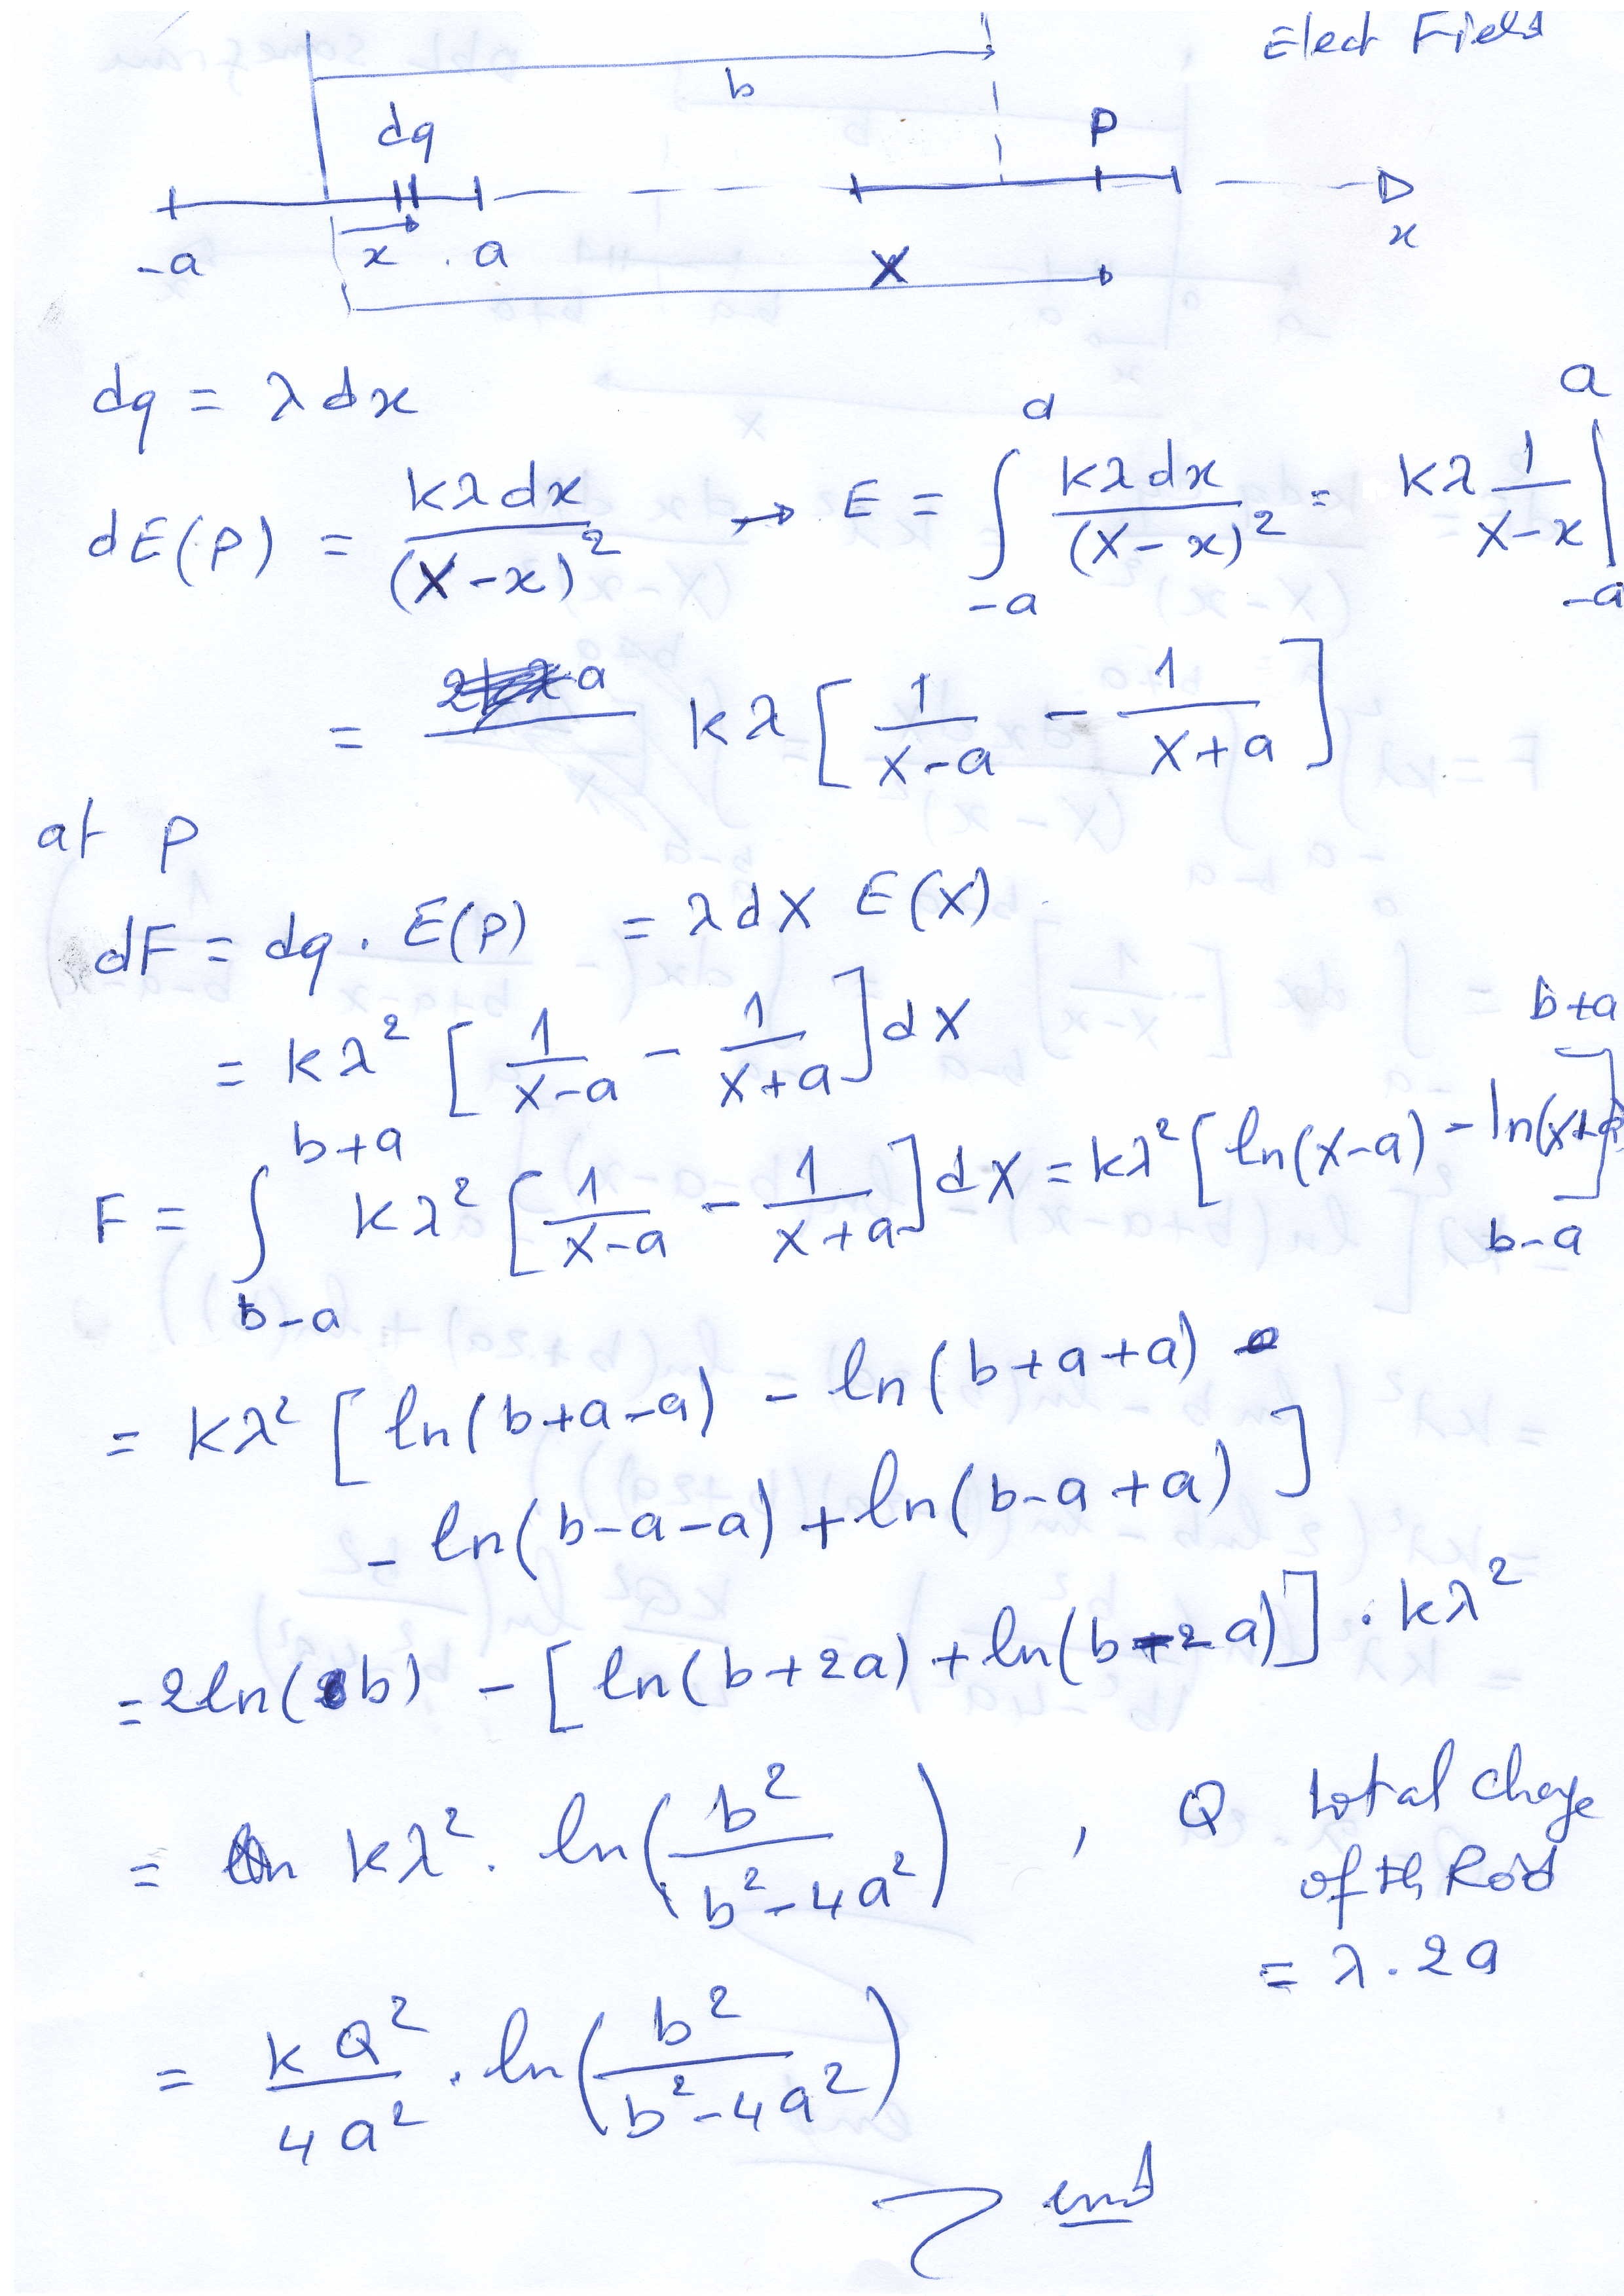 Elect Field
b
dq
P
-a
x
a
X
x
dq = λ dx
dE(p) = kλdx / (X-x)² → E = ∫_{-a}^{a} kλdx / (X-x)² = kλ 1/(X-x) |_{-a}^{a}
= kλ [ 1/(X-a) - 1/(X+a) ]
at p
dF = dq . E(p) = λ dX E(X)
= kλ² [ 1/(X-a) - 1/(X+a) ] dX
F = ∫_{b-a}^{b+a} kλ² [ 1/(X-a) - 1/(X+a) ] dX = kλ² [ ln(X-a) - ln(X+a) ]_{b-a}^{b+a}
= kλ² [ ln(b+a-a) - ln(b+a+a)
- ln(b-a-a) + ln(b-a+a) ]
= 2ln(b) - [ ln(b+2a) + ln(b-2a) ] . kλ²
= kλ² . ln( b² / (b²-4a²) ) , Q total charge
of th Rod
= λ . 2a
= kQ² / 4a² . ln( b² / (b²-4a²) )
end